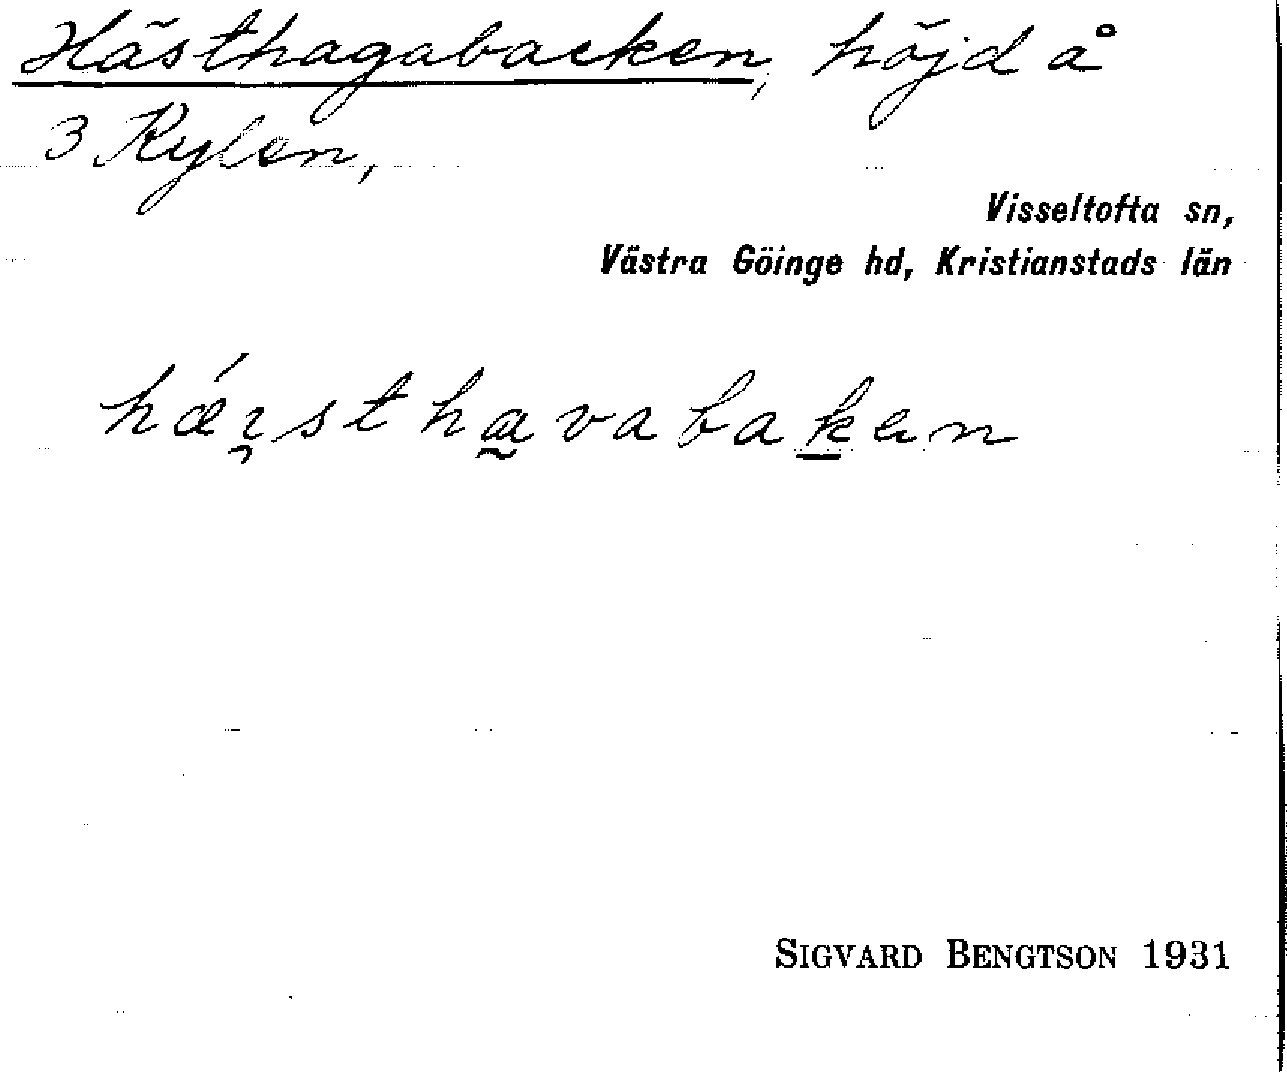 Hästhagabacken, höjd å
3 Rylen,
Visseltofta sn,
Västra Göinge hd, Kristianstads län
hǽi̯sthavabakan
SIGVARD BENGTSON 1931